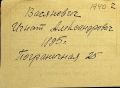 1940 г
Васянович
Игнат Александрович
1895г.
Пограничная 25